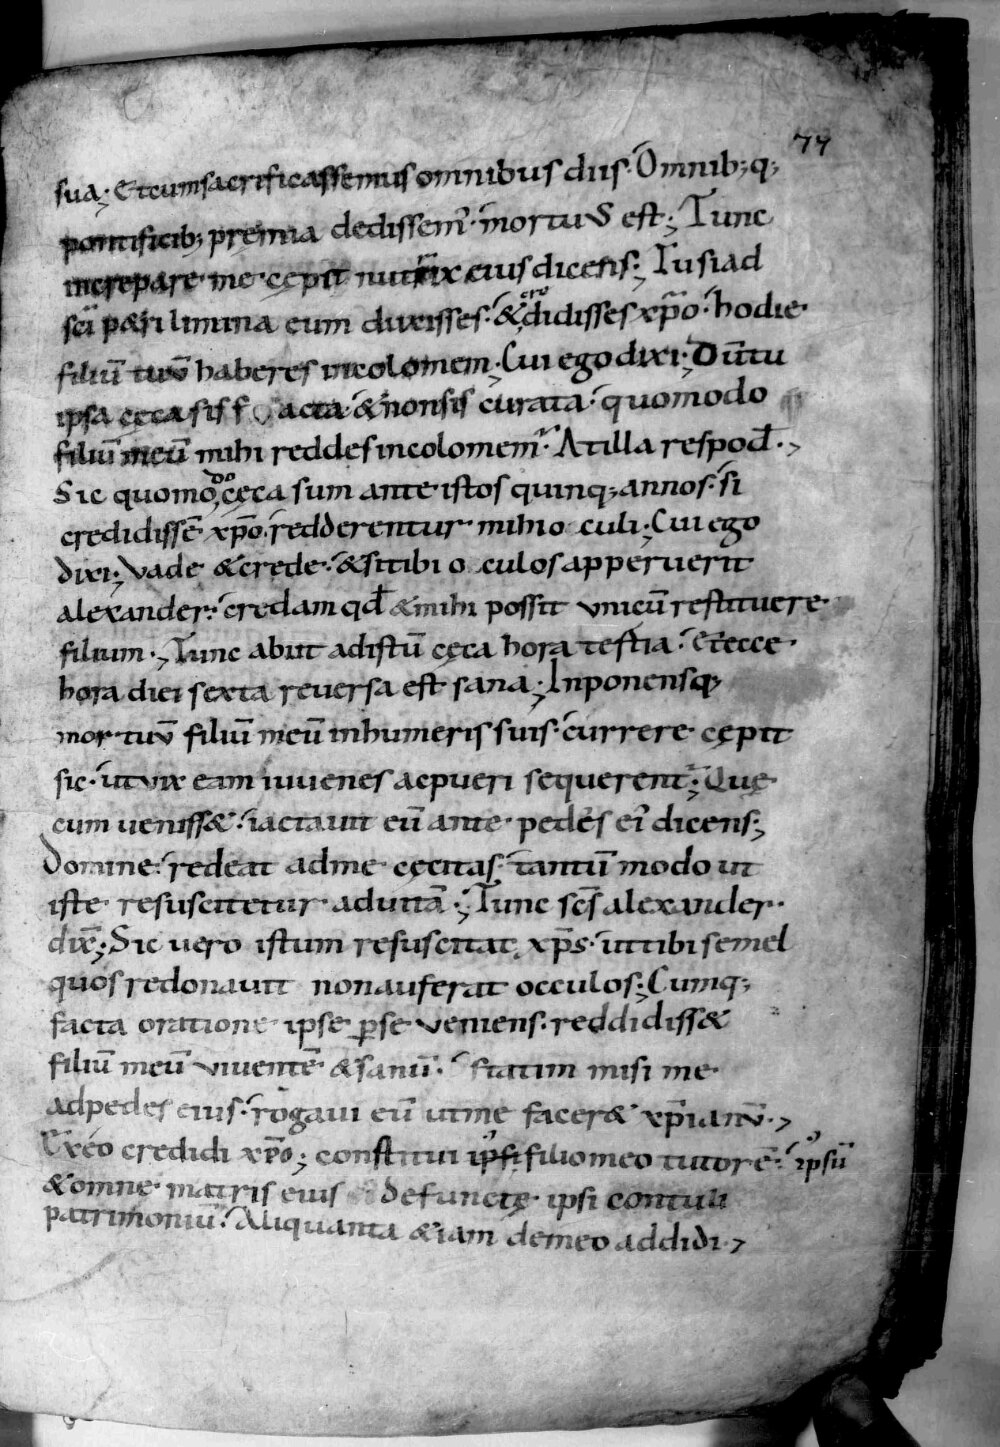 77
sua; Et cum sacrificassemus omnibus diis. Omnib; q;
pontificib; pręmia dedissem'. mortuus est; Tunc
increpare me cępit nutrix eius dicens; Tu si ad
sc̄i pætri limina eum duxisses. & c̀ródidisses xp̄o. hodie
filiū tuū haberes incolomem; Cui ego dixi; Dū tu
ipsa cęca sis facta & non sis curata. quomodo
filiū meū mihi reddes incolomem. At illa respōd.;
Sic quomodo cęca sum ante istos quinq; annos. si
credidissē xp̄o. redderentur mihi oculi; Cui ego
dixi; Vade & crede. & si tibi oculos apperuerit
alexander. credam qd̄ & mihi possit unicū restituere
filium; Tunc abiit ad istū cęca hora testia. Et ecce
hora diei sexta reversa est sana; Inponensq;
mortuū filiū meū in humeris suis. currere cępit
sic. ut vix eam iuvenes ac pueri sequerent'; Quę
cum venissæ. iactavit eū ante pedes ei' dicens;
Domine. redeat ad me cęcitas. tantū modo ut
iste resuscitetur ad vitā; Tunc sc̄s alexander
dix̄; Sic vero istum resuscitat xp̄s. ut tibi semel
quos redonavit non auferat occulos; Cumq;
facta oratione ipse p̱ se veniens. reddidiss&
filiū meū viventē & sanū. statim misi me
ad pedes eius. rogavi eū ut me facer& xp̄ianū;
Ex eo credidi xp̄o; constitui ipsi filio meo tutorē. ipsū
& omne matris eius defunctę ipsi contuli
patrimoniū. Aliquanta &iam de meo addidi;